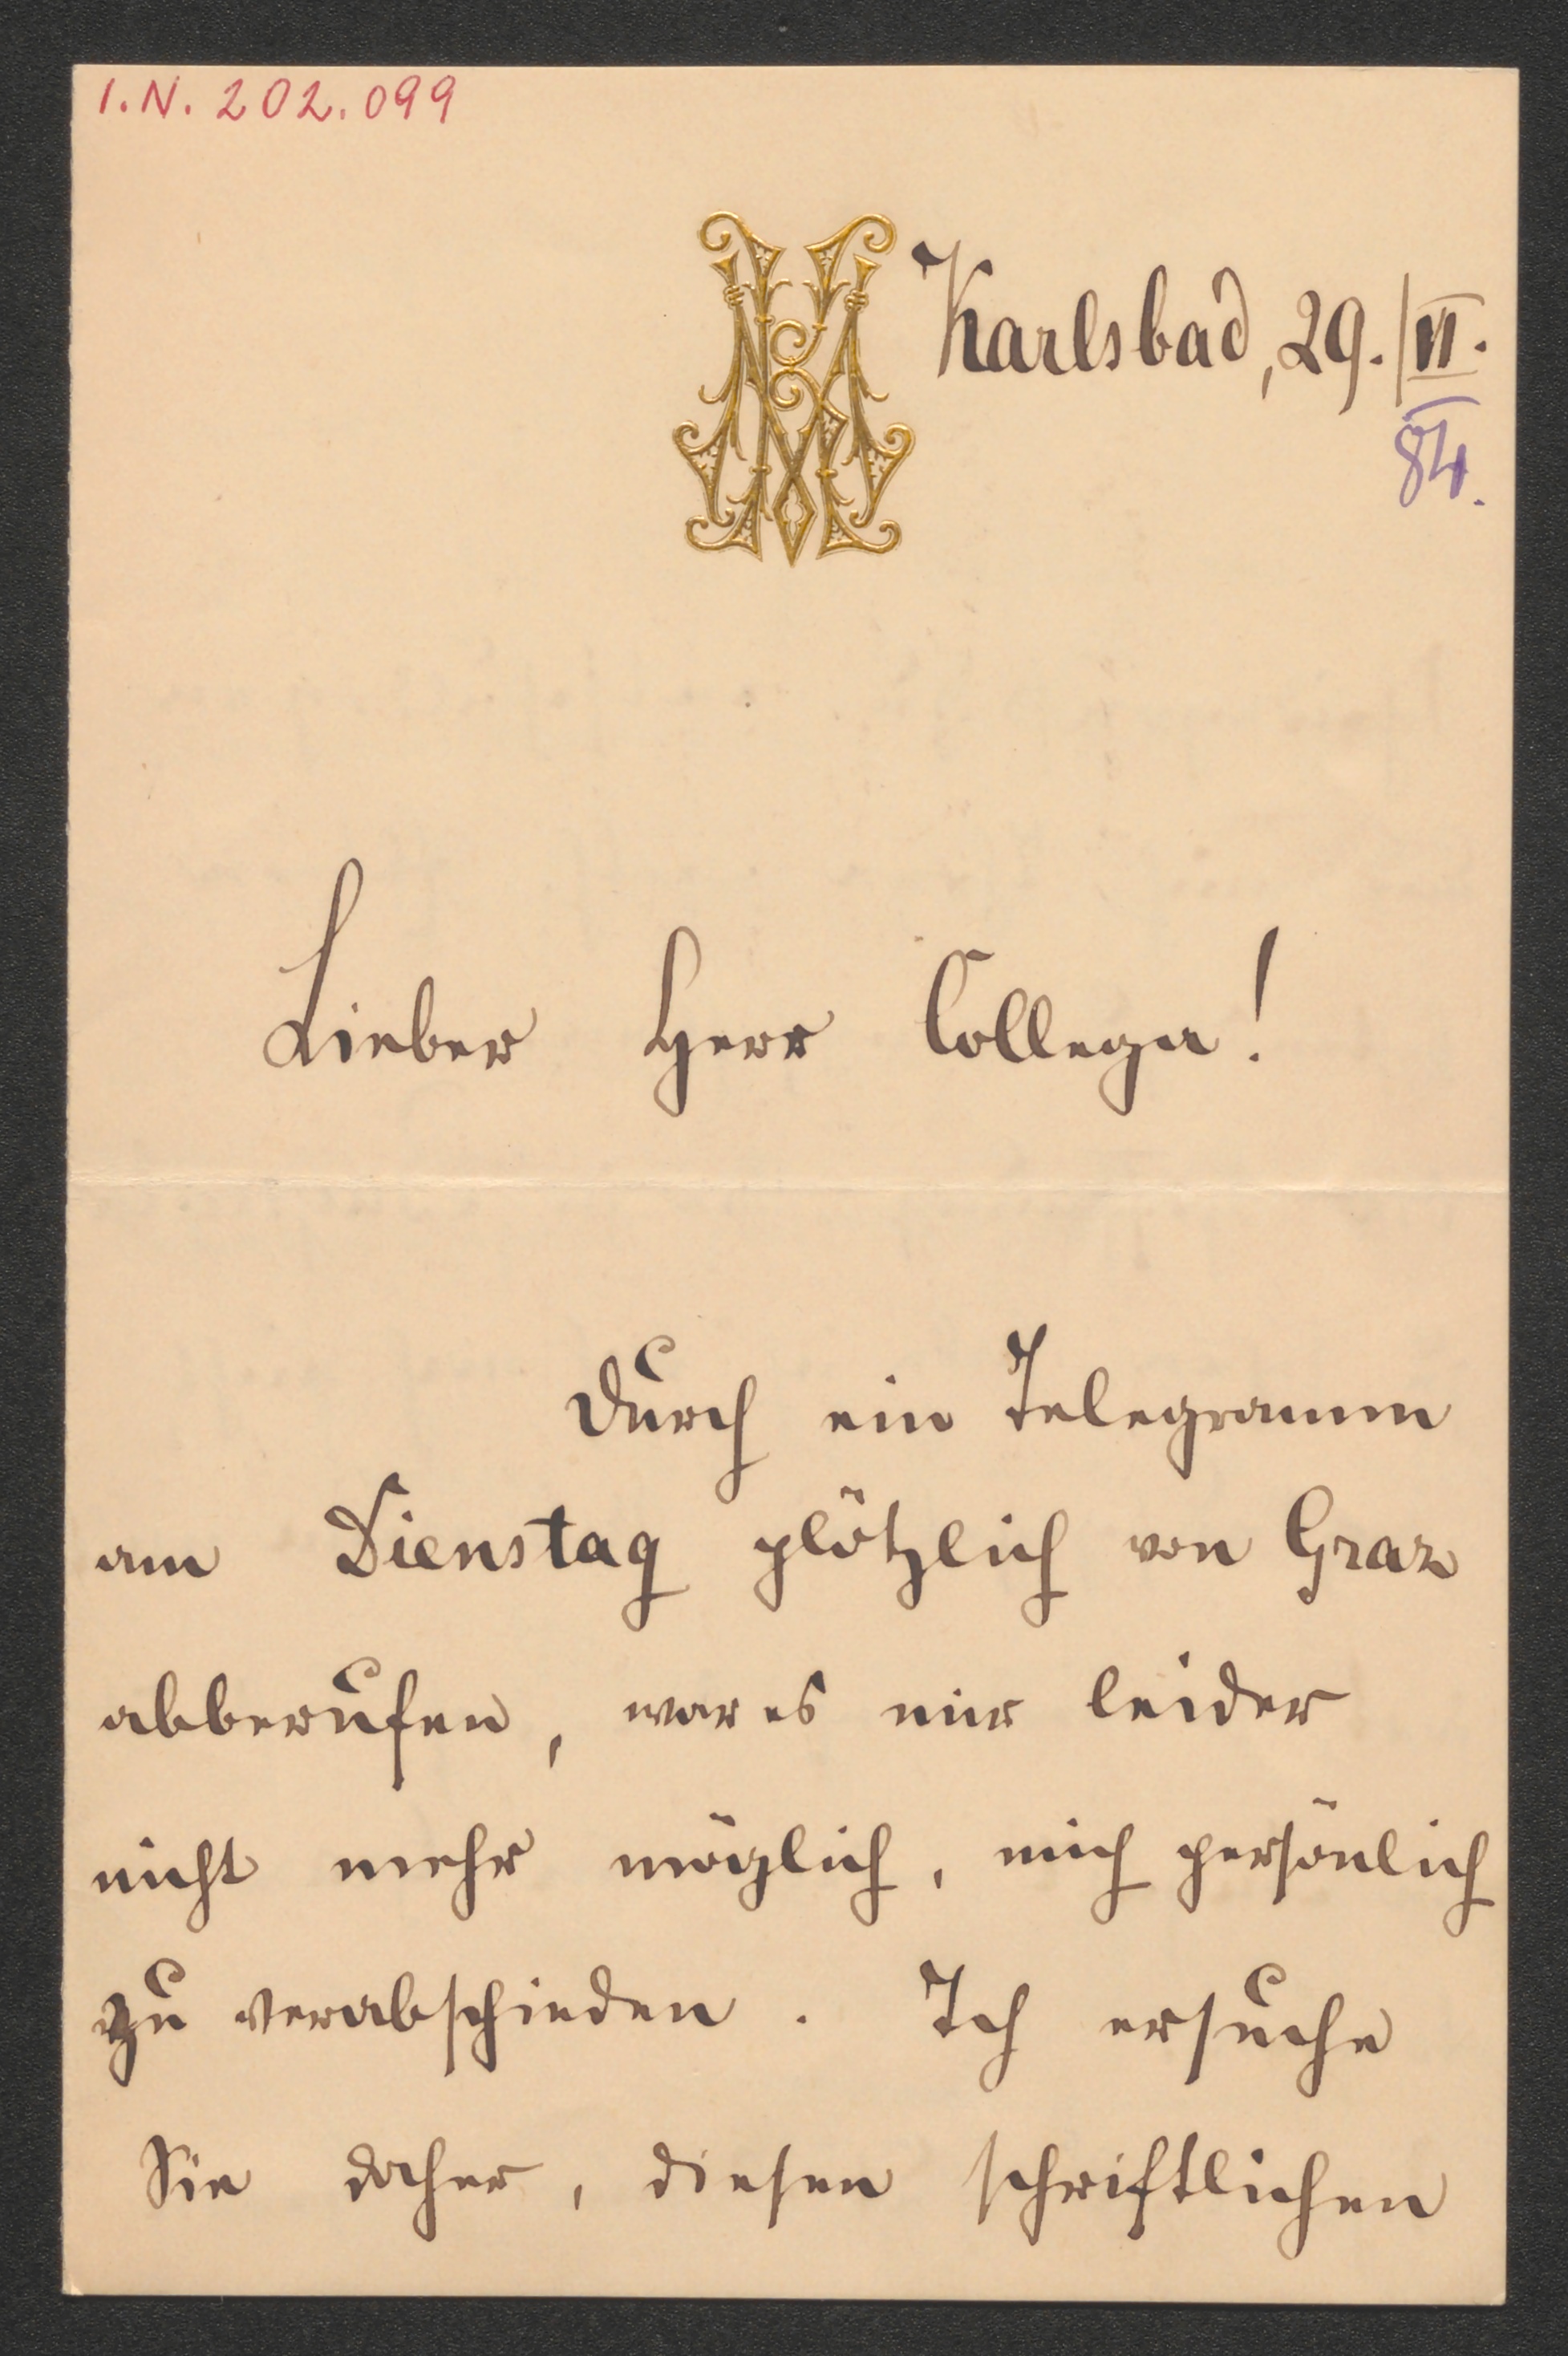 I.N. 202.099
Karlsbad, 29./VI.
84.
Lieber Herr College!
Durch ein Telegramm
am Dienstag plötzlich von Graz
abberufen, war es mir leider
nicht mehr möglich, mich persönlich
zu verabschieden. Ich ersuche
Sie daher, diesen schriftlichen